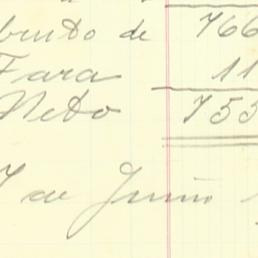 bruto de 766
Tara 11
Neto 755
7 de Junio